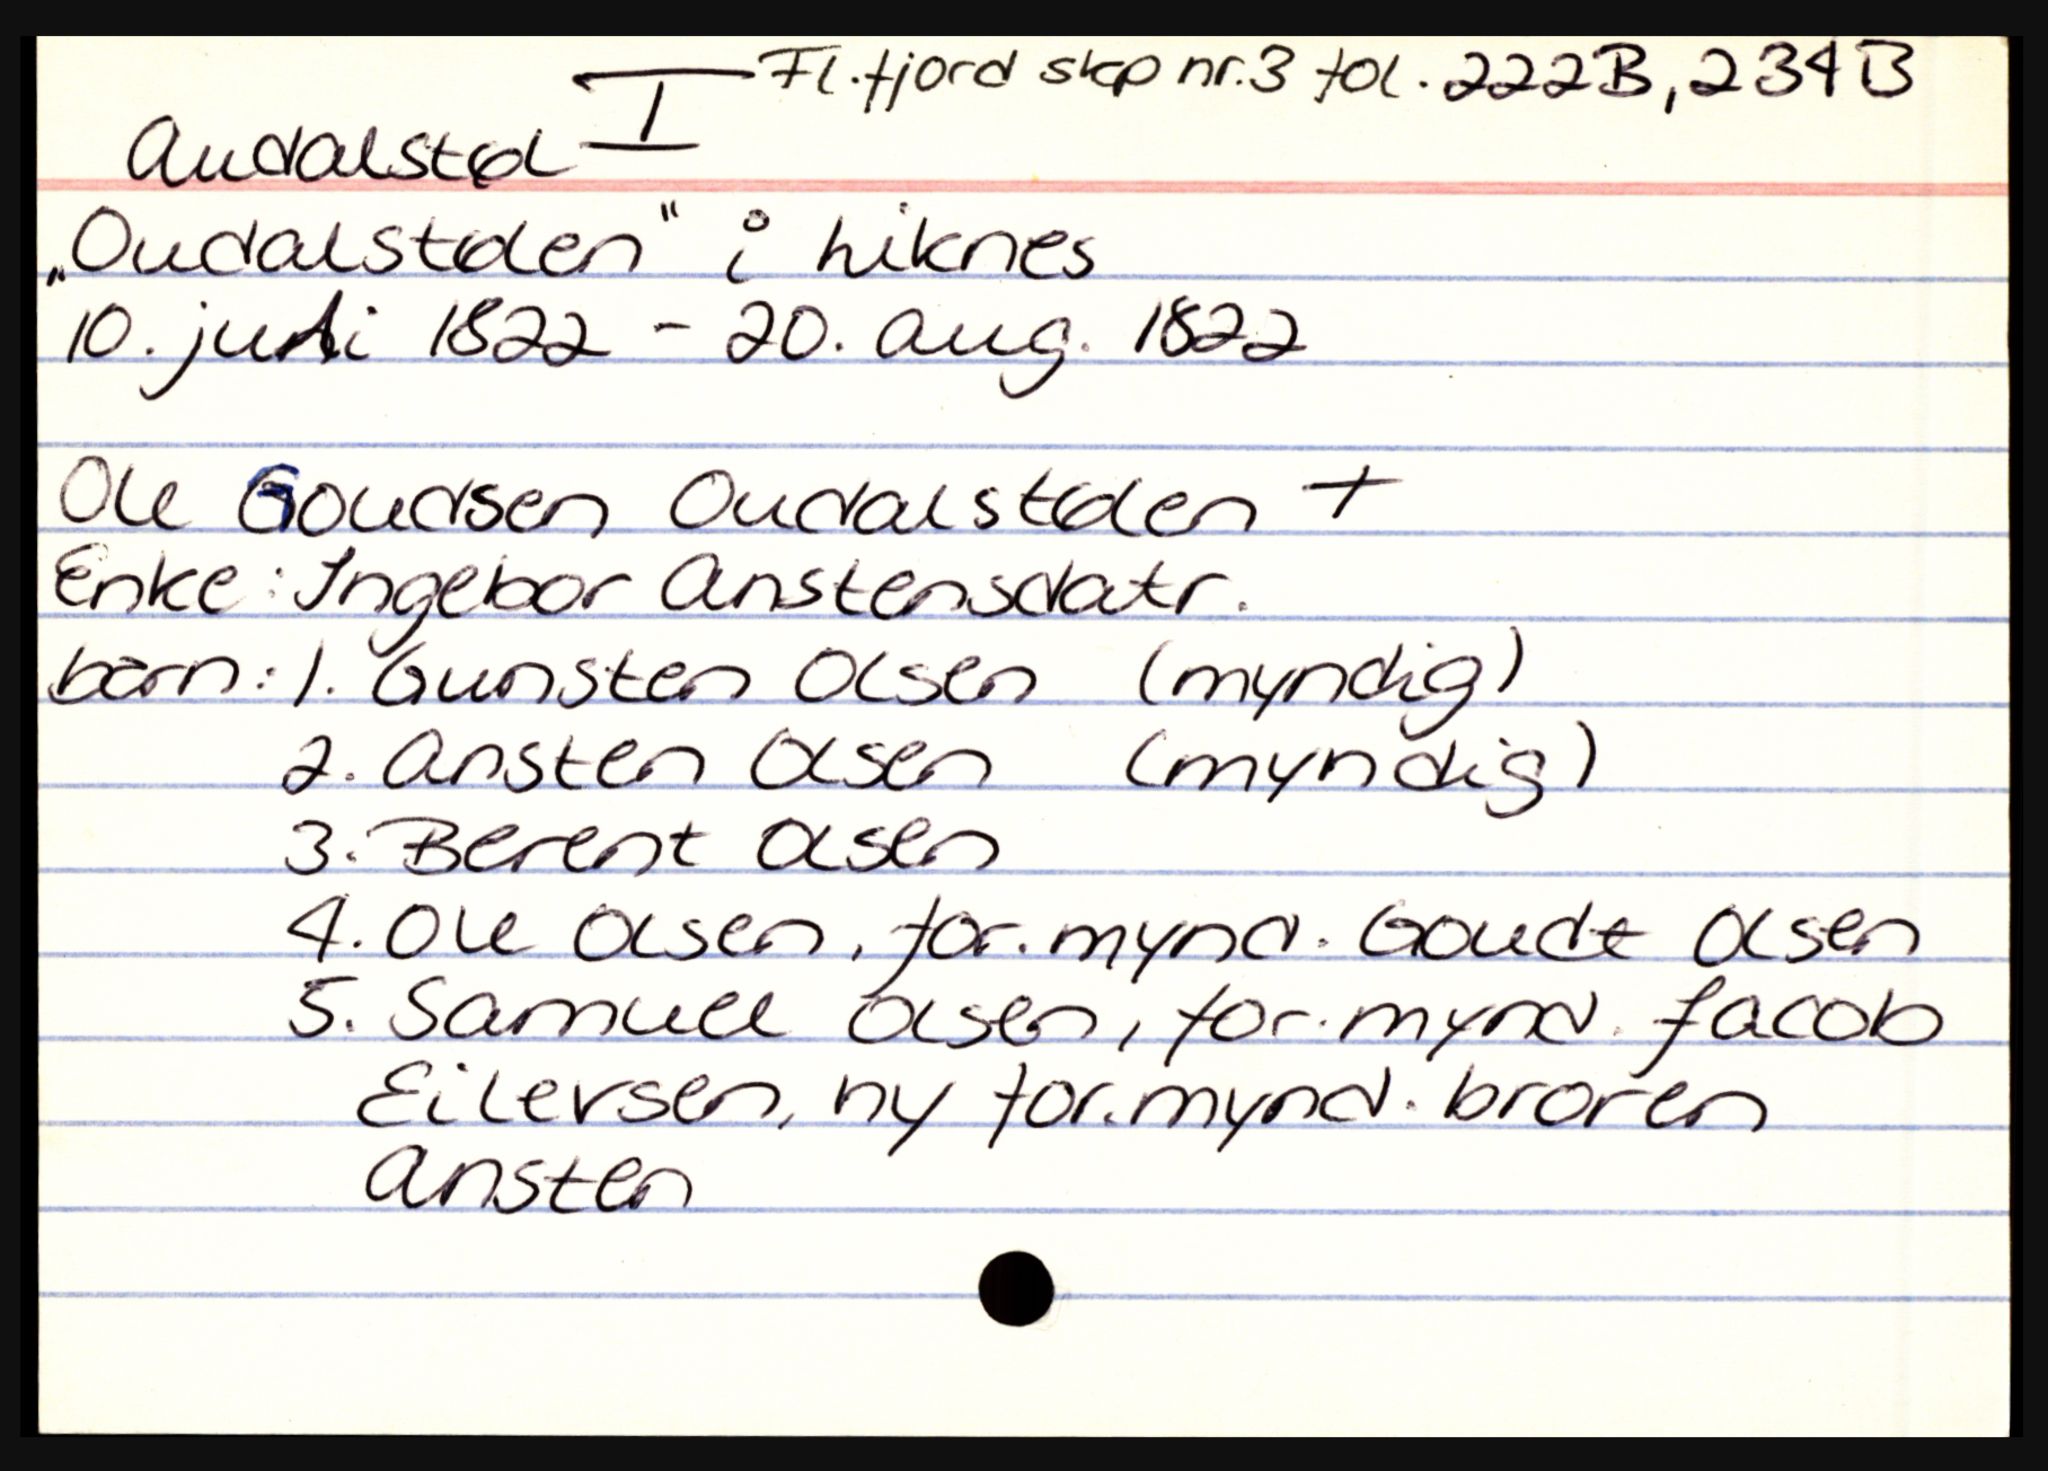 Fl.fjord skp nr.3 fol. 222B, 234B
Audalstøl I
„Oudalstølen" i Liknes
10. juni 1822 - 20. aug. 1822
Ole Goudsen Oudalstølen +
Enke: Ingebor Anstensdatr.
barn: 1. Gunsten Olsen (myndig)
2. Ansten Olsen (myndig)
3. Berent Olsen
4. Ole Olsen, for.mynd. Goudt Olsen
5. Samuel Olsen, for.mynd. Jacob
Eilevsen, ny for.mynd. broren
Ansten